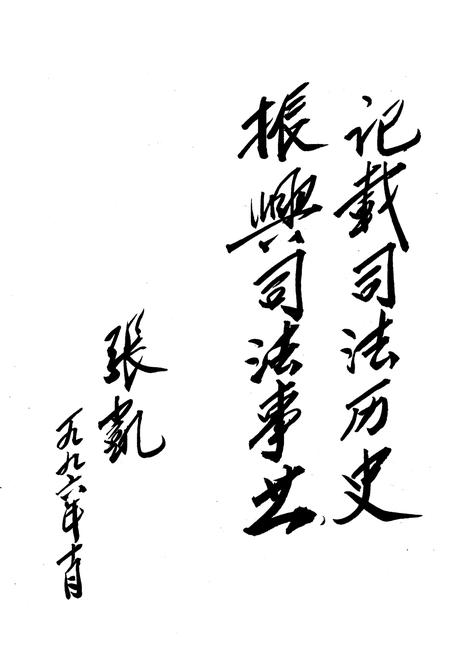 记載司法历史
振興司法事业
張凱
一九九六年十月